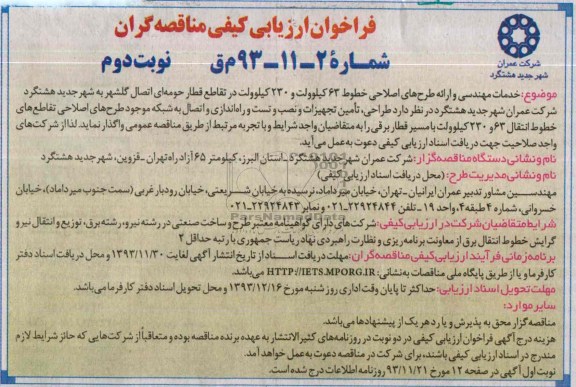 فراخوان ارزیابی کیفی مناقصه گران
شمارهٔ ۲-۱۱-۹۳م‌ق نوبت دوم
شرکت عمران
شهر جدید هشتگرد
موضوع: خدمات مهندسی و ارائه طرح‌های اصلاحی خطوط ۶۳ کیلوولت و ۲۳۰ کیلوولت در تقاطع قطار حومه‌ای اتصال گلشهر به شهر جدید هشتگرد
شرکت عمران شهر جدید هشتگرد در نظر دارد طراحی، تأمین تجهیزات و نصب و تست و راه‌اندازی و اتصال به شبکه موجود طرح‌های اصلاحی تقاطع‌های
خطوط انتقال ۶۳ و ۲۳۰ کیلوولت با مسیر قطار برقی را به متقاضیان واجد شرایط و با تجربه مرتبط از طریق مناقصه عمومی واگذار نماید. لذا از شرکت‌های
واجد صلاحیت جهت دریافت اسناد ارزیابی کیفی دعوت به‌عمل می‌آید.
نام و نشانی دستگاه مناقصه‌گزار: شرکت عمران شهر جدید هشتگرد - استان البرز، کیلومتر ۶۵ آزادراه تهران - قزوین، شهر جدید هشتگرد
نام و نشانی مدیریت طرح: (محل دریافت اسناد ارزیابی کیفی)
مهندسین مشاور تدبیر عمران ایرانیان - تهران، خیابان میرداماد، نرسیده به خیابان شریعتی، خیابان رودبار غربی (سمت جنوب میرداماد)، خیابان
خسروانی، شماره ۴ طبقه ۴، واحد ۱۹ - تلفن ۲۲۹۲۴۸۴۴-۰۲۱ و نمابر ۲۲۹۲۴۸۴۳-۰۲۱
شرایط متقاضیان شرکت در ارزیابی کیفی: شرکت‌های دارای گواهینامه معتبر طرح و ساخت صنعتی در رشته نیرو، رشته برق، توزیع و انتقال نیرو و
گرایش خطوط انتقال برق از معاونت برنامه‌ریزی و نظارت راهبردی نهاد ریاست جمهوری با رتبه حداقل ۲
برنامه زمانی فرآیند ارزیابی کیفی مناقصه‌گران: مهلت دریافت اسناد از تاریخ انتشار آگهی لغایت ۱۳۹۳/۱۱/۳۰ و محل دریافت اسناد دفتر
کارفرما و یا از طریق پایگاه ملی مناقصات به‌نشانی: HTTP://IETS.MPORG.IR می‌باشد.
مهلت تحویل اسناد ارزیابی: حداکثر تا پایان وقت اداری روز شنبه مورخ ۱۳۹۳/۱۲/۱۶ و محل تحویل اسناد دفتر کارفرما می‌باشد.
سایر موارد:
مناقصه گزار محق به پذیرش و یا رد هر یک از پیشنهادها می‌باشد.
هزینه درج آگهی فراخوان ارزیابی کیفی در دو نوبت در روزنامه‌های کثیرالانتشار به عهده برنده مناقصه بوده و متعاقباً از شرکت‌هایی که حائز شرایط لازم
مندرج در اسناد ارزیابی کیفی باشند، برای شرکت در مناقصه دعوت به‌عمل خواهد آمد.
نوبت اول آگهی در صفحه ۱۲ مورخ ۹۳/۱۱/۲۱ روزنامه اطلاعات درج شده است.